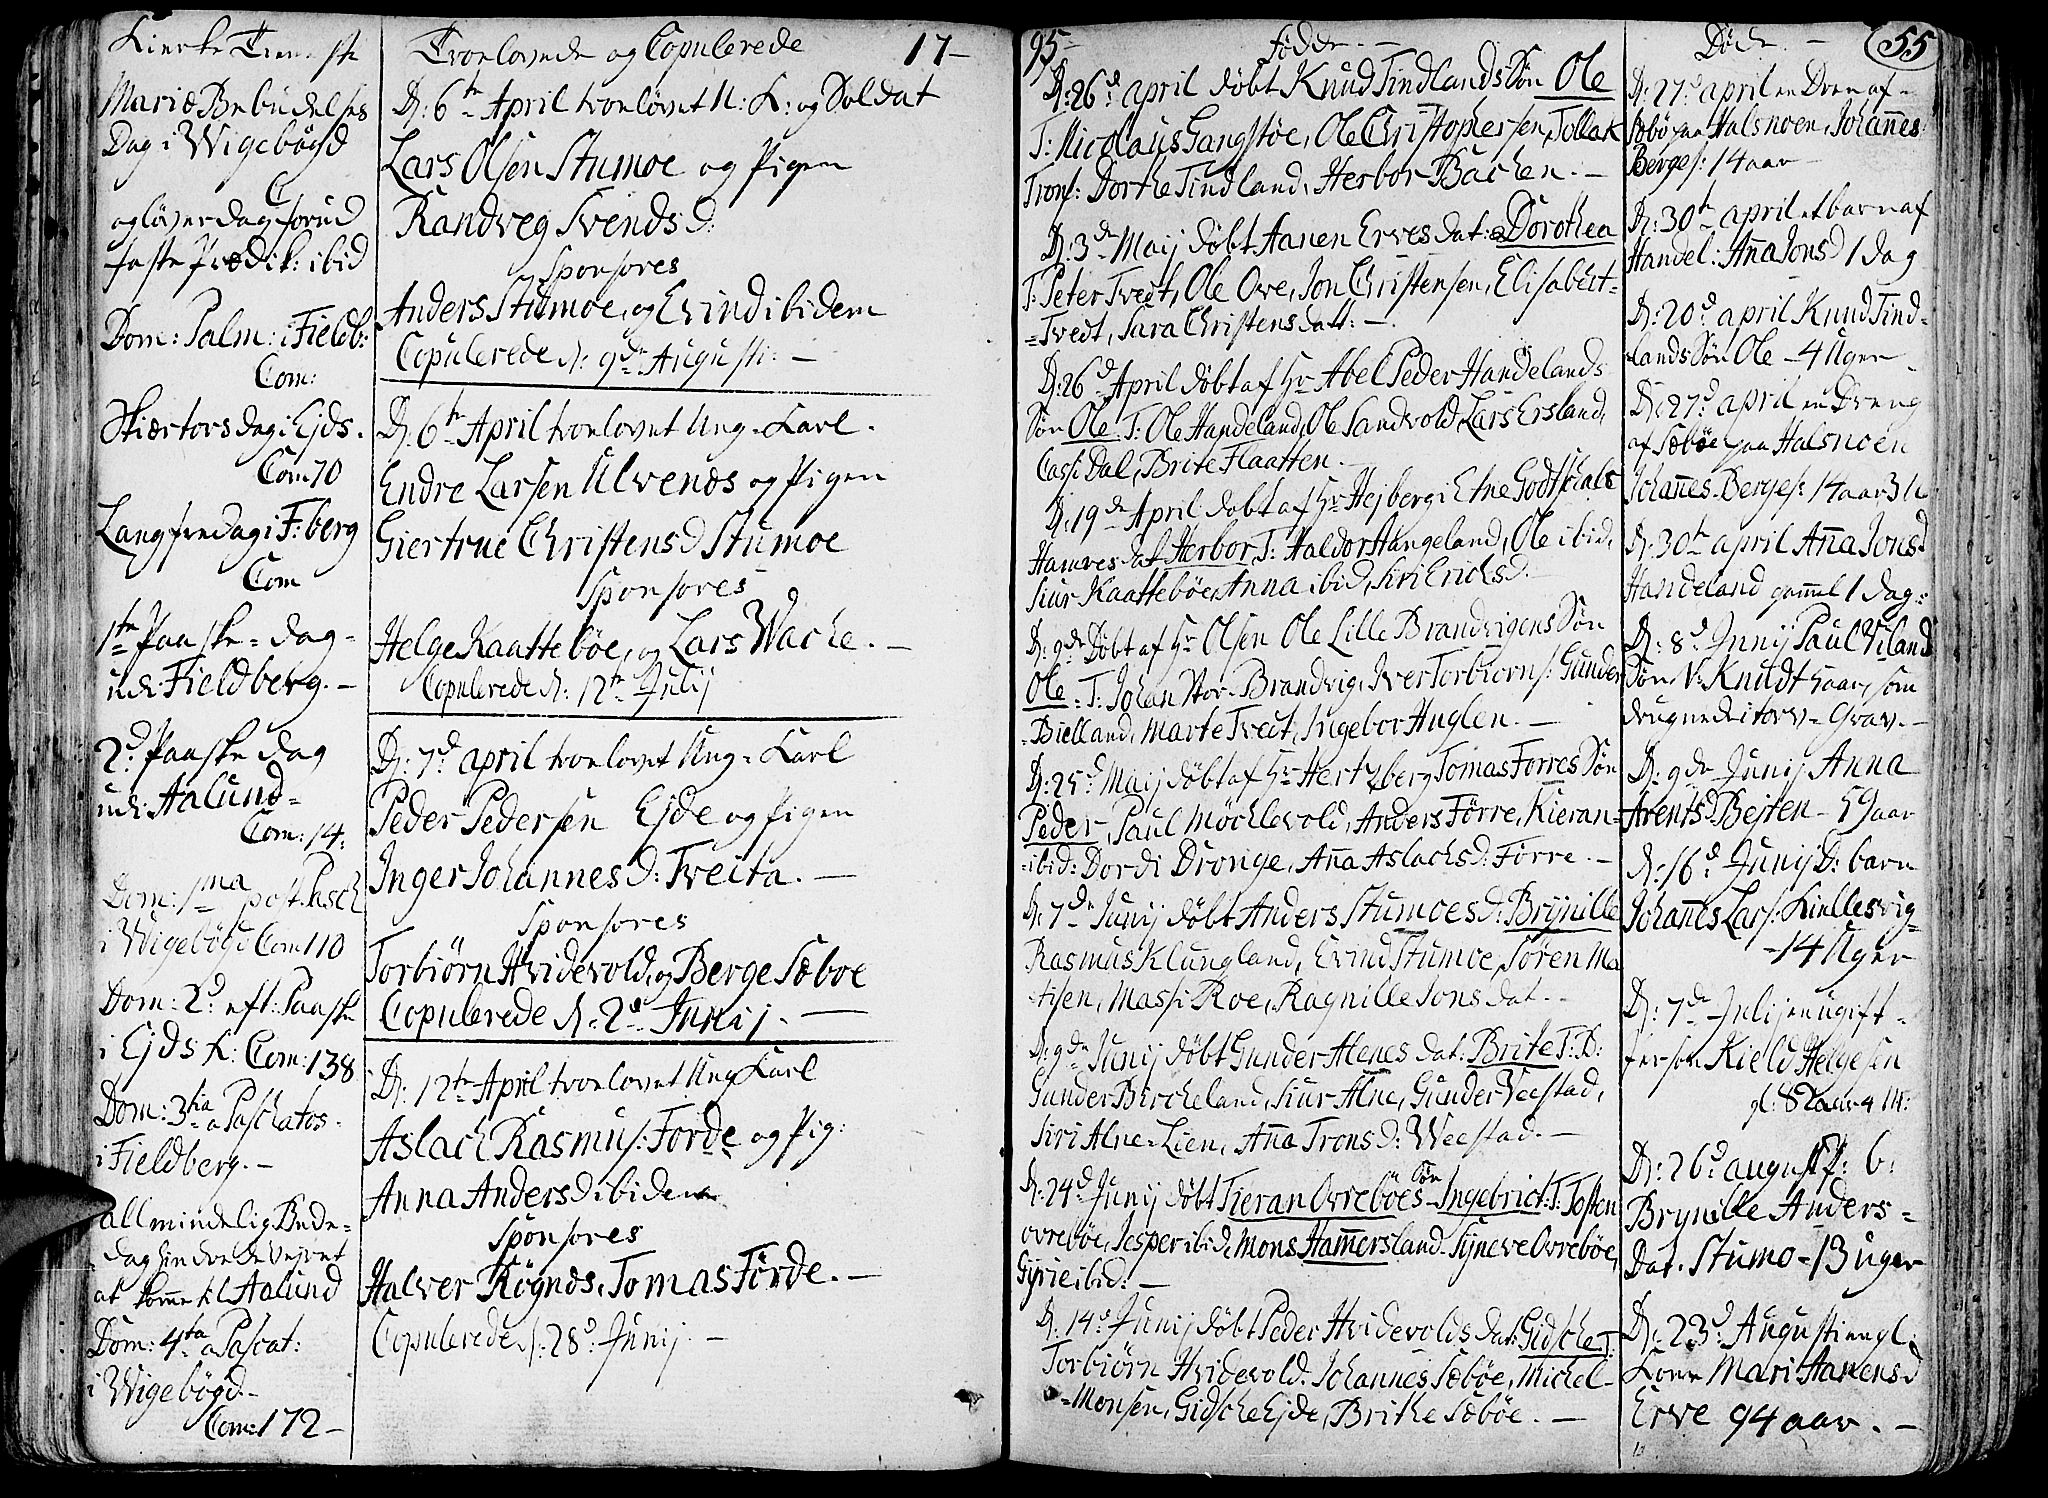 Kirke Tieneste
Mariæ Bebudelses
Dag i Wigebögd
C
og löverdag forud
faste Prædik: ibid
Dom: Palm: i Fieldb:
Com:
Skiærtorsdag i Ejds.
Com 70
Langfredag i F:berg
Com
1ste Paaske-dag-
udi Fieldberg.-
2d Paaske dag
udi Aalund-
Com: 14.
Dom: 1ma post Pasch
i Wigebögd Com 110
Dom: 2d eft: Paaske
i Ejds k: Com: 138
Dom: 3tia a Paschatos.
i Fieldberg.-
Allmindelig Bede-
dag hindrede Vejret
at komme til Aalund
Dom: 4ta a Pascat:
i Wigebögd.-
Com: 172-
Troelovede og Copulerede 17-
D: 6te April troelovet U: K: og Soldat
Lars Olsen Stumoe og Pigen
Randveg Svendsd:
Sponsores
Anders Stumoe, og Evind ibidem
Copulerede d: 9de Augusti:-
D: 6te April troelovet Ung-Karl.
Endre Larsen Ulvenos og Pigen
Giertrue Christensd Stumoe
Sponsores
Helge Kaatteböe, og Lars Wacke.-
Copulerede d: 12te Julij
D: 7d april troelovet Ung-Karl
Peder Pedersen Ejde og Pigen
Inger Johannesd: Tveita.-
Sponsores
Torbiörn Hvidevold, og Berge Sæboe
Copulerede d: 2d Junij.-
D: 12te April troelovet Ung Karl
Aslach Rasmus: Förde og Pig:
Anna Andersd ibidem
Sponsores
Halver Rögnds, Tomas Förde.-
Copulerede d: 28d Junij.-
95- Födde.-
D: 26d april döbt Knud Tindlands Sön Ole
T: Nicolaus Gangstöe, Ole Christophersen, Tollak
Trons: Dorthe Tindland, Herbor Backen.-
D: 3de Maij döbt Aanen Erves dat: Dorothea
T: Peter Tvedt, Ole Ove, Jon Christensen, Elisabeht-
-Tvedt, Sara Christens datt:-.
D: 26d April döbt af Hr Abel Peder Handelands
Sön Ole T: Ole Handeland, Ole Sandvold, Lars Ersland,
Cassi Dal, Brite Flaatten.-
D: 19de April döbt af Hr Hejberg i Etne Godtschalc
Hamres dat Herbor T: Haldor Hangeland, Ole ibid,
Siur Kaatteböe, Anna ibid, Siri Ericksd.-
D: 9de Döbt af Hr Olsen Ole Lille Brandvigens Sön
Ole- T: Johan Stor-Brandvig, Iver Torbiorns: Gunder
-Bielland, Marte Tvedt, Ingebor Huglen.-
D: 25d Maij döbt af Hr Hertzberg Tomas Forres Sön
Peder, Paul Möcklevold, Anders Förre, Kieran-
-ibid: Dordi Dronge, Aña Aslachsd: Förre.-
D: 7de Junij döbt Anders Stumoes d: Brynille
Rasmus Klungland, Evind Stumoe, Sören Ma
tisen, Massi Roe, Ragnille Jons dat.-
D: 9de Junij döbt Gunder Alenes dat: Brite T: D:
Gunder Birckeland, Siur Alne, Gunder Veestad,
Siri Alne-Lien, Aña Tronsd: Weestad.-
D: 24d Junij döbt Tieran Ovreböes Sön Ingebrict: T: Tosten
ovreböe, Jesper ibid, Mons Hamersland- Syneve Ovreböe,
Gyrie ibid:-
D. 14d Junij döbt Peder Hvidevolds dat: Gidsche T:
Torbiörn Hvidevold. Johannes Sæböe, Michel-
-Monsen, Gidsche Ejde, Brithe Sæböe.-
Döde.- 55
D: 27d april en Dren af-
Sæbö paa Halsnoen, Johañes
Berges: 14 aar-
D: 30te april et barn af
Handel: Aña Jonsd 1 dag
D: 20d april Knud Tind-
lands Sön Ole-4 Uger
D: 27d april en Dreng
af Sæböe paa Halsnoen
Johañes Berges: 14 aar 3 U
D: 30te april Aña Jonsd
Handeland gamel 1 dag:
D: 8d Junij Paul Viland
Sön N: Knudt 4 aar, som
drugnede i torv-Grav.-
D: 9de Junij Anna
Arentsd Bejten-59 aar
d: 16d Junij D: barn
Johañes Lars: Kiellesvig-
-14 Uger
D: 7de Julij en ugift-
Person Kield Helgesen
gl: 82 aar 4 M:
D: 26d august P: b:
Brynille Anders-
Dat. Stumo-13 uger
D: 23d Augusti en gl:
Kone Mari Aanensd
Erve 94 aar.-